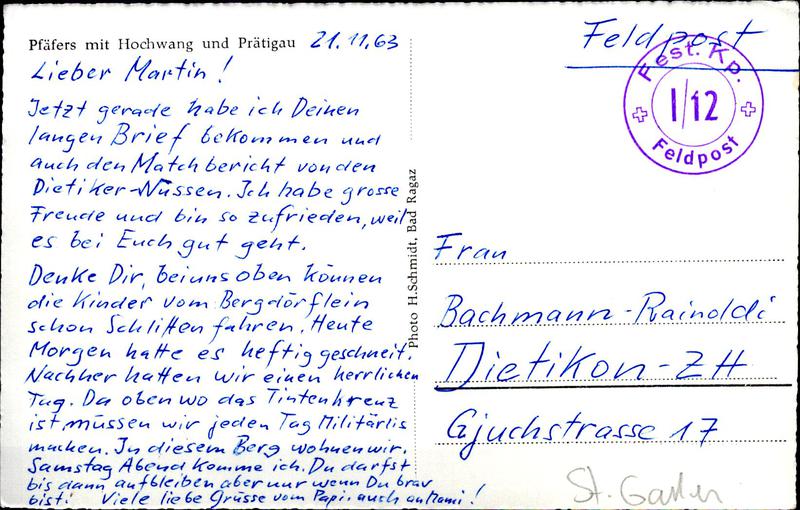 Pfäfers mit Hochwang und Prätigau 21.11.63
Lieber Martin!
Jetzt gerade habe ich Deinen
langen Brief bekommen und
auch den Matchbericht von den
Dietiker-Nüssen. Ich habe grosse
Freude und bin so zufrieden, weil
es bei Euch gut geht.
Denke Dir, bei uns oben können
die Kinder vom Bergdörflein
schon Schlitten fahren. Heute
Morgen hatte es heftig geschneit.
Nachher hatten wir einen herrlichen
Tag. Da oben wo das Tintenkreuz
ist, müssen wir jeden Tag Militärlis
machen. In diesem Berg wohnen wir.
Samstag Abend komme ich. Du darfst
bis dann aufbleiben aber nur wenn Du brav
bist! Viele liebe Grüsse vom Papi. auch an Mami!
Photo H. Schmidt, Bad Ragaz
Feldpost
Fest. Kp.
I/12
Feldpost
Frau
Bachmann-Rainoldi
Dietikon-ZH
Gjuchstrasse 17
St. Gallen